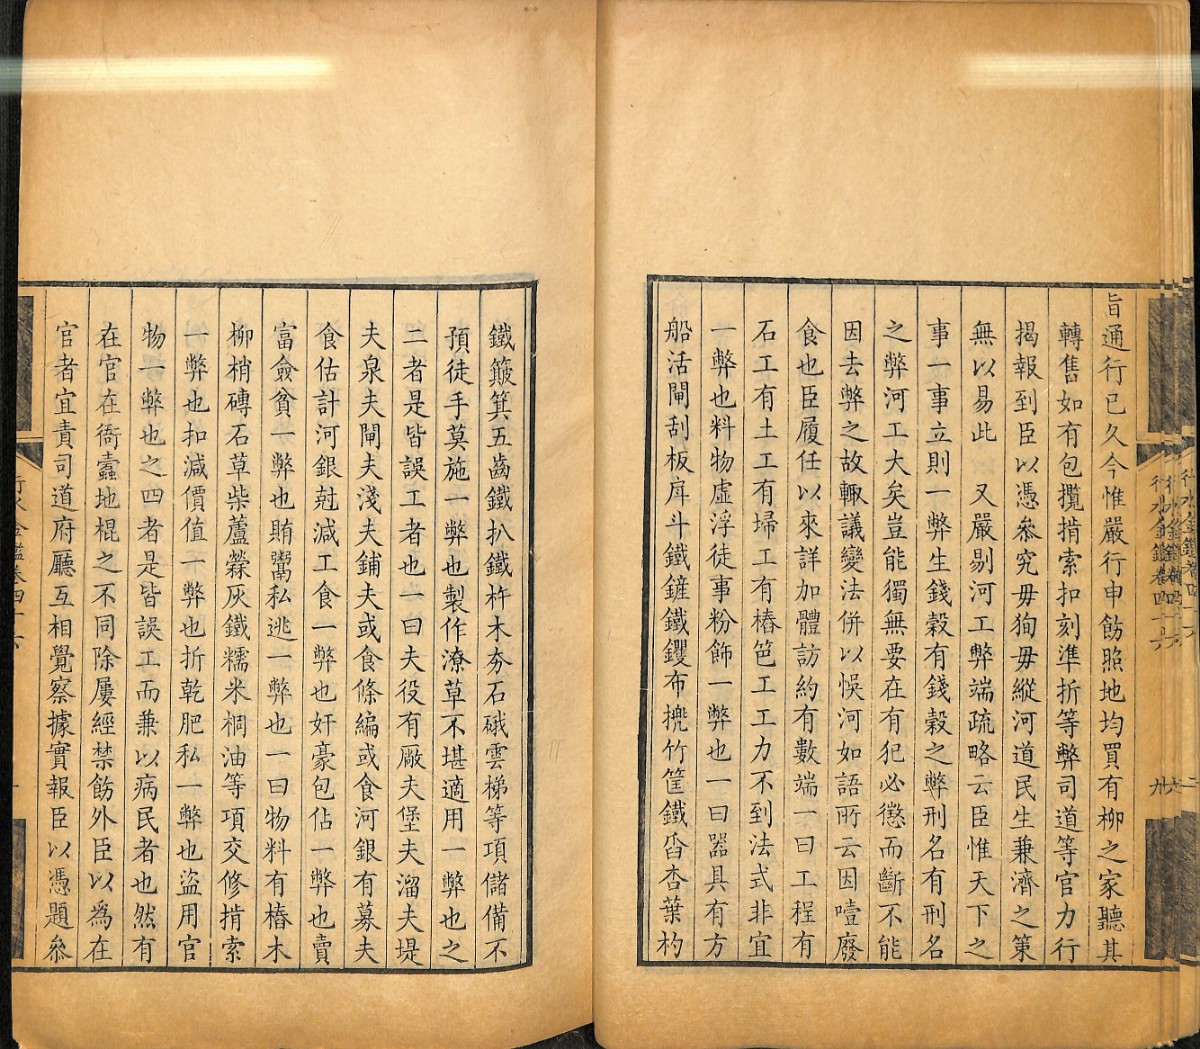 旨通行已久今惟嚴行申飭照地均買有柳之家聽其
轉售如有包攬掯索扣刻準折等弊司道等官力行
揭報到臣以憑參究毋狥毋縱河道民生兼濟之策
無以易此 又嚴剔河工弊端疏略云臣惟天下之
事一事立則一弊生錢穀有錢穀之弊刑名有刑名
之弊河工大矣豈能獨無要在有犯必懲而斷不能
因去弊之故輙議變法併以悞河如語所云因噎廢
食也臣履任以來詳加體訪約有數端一曰工程有
石工有土工有埽工有樁笆工工力不到法式非宜
一弊也料物虛浮徒事粉飾一弊也一曰器具有方
船活閘刮板戽斗鐵鏟鐵钁布㧡竹筐鐵畨杏葉杓
鐵簸箕五齒鐵扒鐵杵木夯石硪雲梯等項儲備不
預徒手莫施一弊也製作潦草不堪適用一弊也之
二者是皆誤工者也一曰夫役有厰夫堡夫溜夫堤
夫泉夫閘夫淺夫鋪夫或食條編或食河銀有募夫
食估計河銀尅減工食一弊也奸豪包佔一弊也賣
富僉貧一弊也賄鬻私逃一弊也一曰物料有樁木
柳梢磚石草柴蘆䔲灰鐵糯米桐油等項交修掯索
一弊也扣減價值一弊也折乾肥私一弊也盜用官
物一弊也之四者是皆誤工而兼以病民者也然有
在官在衙蠹地棍之不同除屢經禁飭外臣以爲在
官者宜責司道府廳互相覺察據實報臣以憑題參
行水金鑑卷四十六